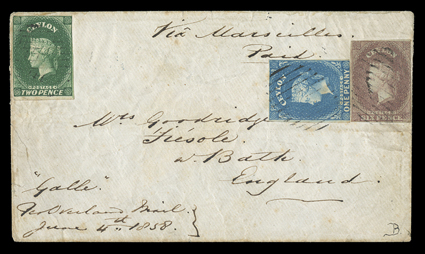 Via Marseilles.
Paid.
CEYLON
POSTAGE
TWO PENCE
CEYLON
POSTAGE
ONE PENNY
CEYLON
POSTAGE
SIX PENCE
Mrs Goodridge
Fiesole
nr. Bath.
England.
"Galle"
Pr Overland Mail.
June 4th 1858.
B